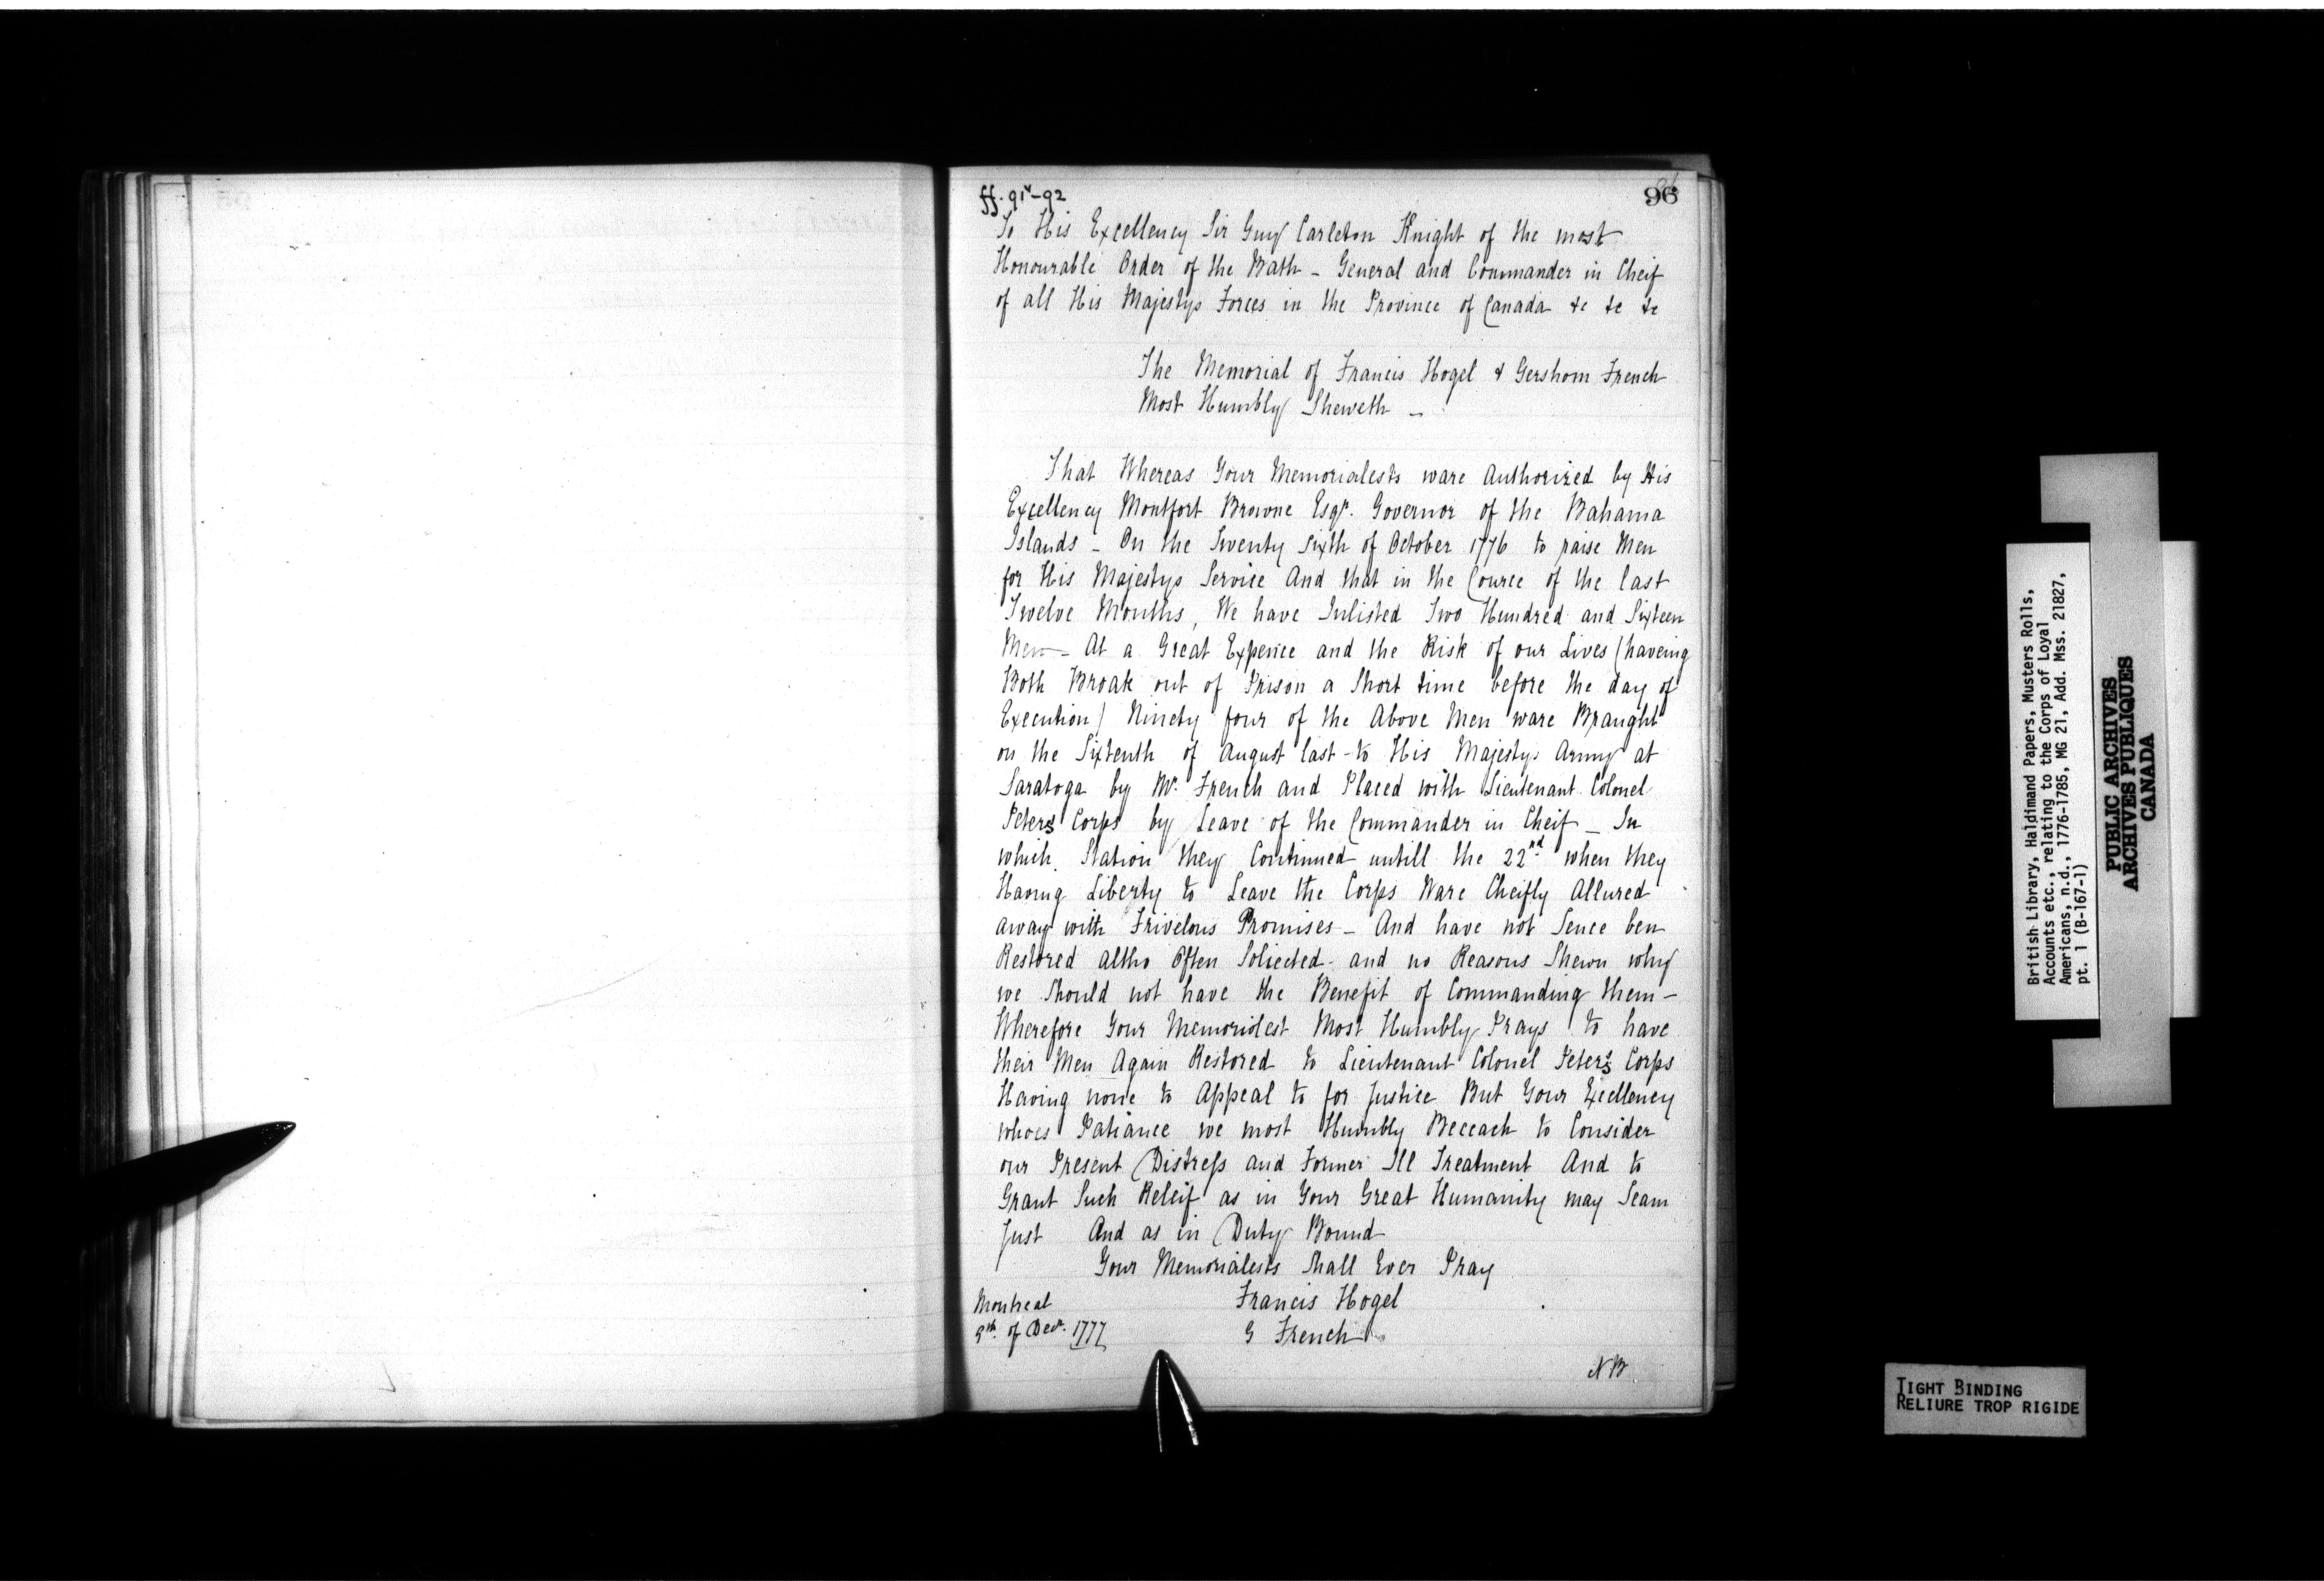 ff. 91v-92
96
To His Excellency Sir Guy Carleton Knight of the most
Honourable Order of the Bath - General and Commander in Cheif
of all His Majestys Forces in the Province of Canada &c &c &c
The Memorial of Francis Hogel & Gershom French
Most Humbly Sheweth -
That Whereas Your Memorialests ware Authorized by His
Excellency Montfort Browne Esqr. Governor of the Bahama
Islands - On the Twenty Sixth of October 1776 to raise Men
for His Majestys Service And that in the Cource of the last
Twelve Months, We have Inlisted Two Hundred and Sixteen
Men - At a Great Expence and the Risk of our Lives (haveing
Both Broak out of Prison a Short time before the day of
Execution) Ninety four of the Above Men ware Braught
on the Sixtenth of August last - to His Majestys Army at
Saratoga by Mr. French and Placed with Lieutenant Colonel
Peters Corps by Leave of the Commander in Cheif - In
which Station they Continued untill the 22nd. when they
Having Liberty to Leave the Corps Ware Cheifly Allured
away with Frivelous Promises - And have not Sence ben
Restored altho Often Soliceted - and no Reasons Shewn why
we Should not have the Benefit of Commanding them -
Wherefore Your Memorialest Most Humbly Prays to have
their Men Again Restored to Lieutenant Colonel Peters Corps
Having none to Appeal to for Justice But Your Excellency
whoes Patiance we most Humbly Beceach to Consider
our Present Distress and Former Ill Treatment And to
Grant Such Releif as in Your Great Humanity may Seam
Just And as in Duty Bound
Your Memorialests Shall Ever Pray
Montreal
Francis Hogel
9th. of Decr. 1777
G French
NB
British Library, Haldimand Papers, Musters Rolls,
Accounts etc., relating to the Corps of Loyal
Americans, n.d., 1776-1785, MG 21, Add. Mss. 21827,
pt. 1 (B-167-1)
PUBLIC ARCHIVES
ARCHIVES PUBLIQUES
CANADA
TIGHT BINDING
RELIURE TROP RIGIDE